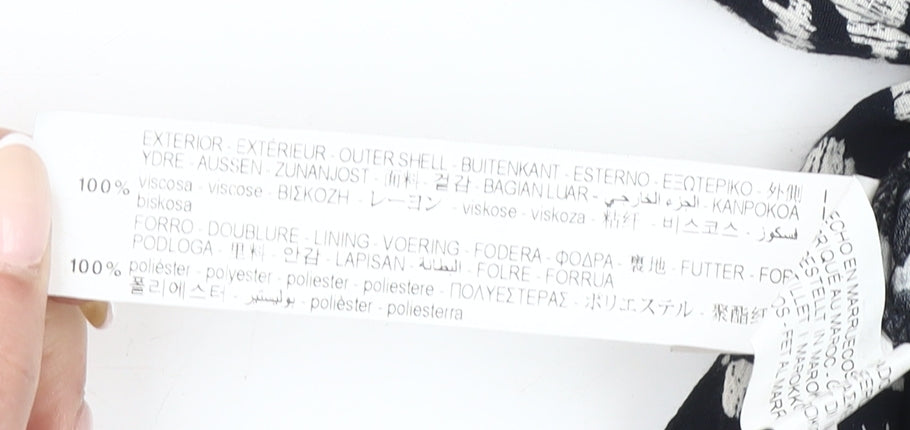 EXTERIOR - EXTÉRIEUR - OUTER SHELL - BUITENKANT - ESTERNO - ΕΞΩΤΕΡΙΚΟ - 外側
YDRE - AUSSEN - ZUNANJOST - 面料 - 겉감 - BAGIAN LUAR - الجزء الخارجي - KANPOKOA
100% viscosa - viscose - ΒΙΣΚΟΖΗ - レーヨン - viskose - viskoza - 粘纤 - 비스코스 - فسكوز
biskosa
FORRO - DOUBLURE - LINING - VOERING - FODERA - ΦΟΔΡΑ - 裏地 - FUTTER - FOR
PODLOGA - 里料 - 안감 - LAPISAN - البطانة - FOLRE - FORRUA
100% poliéster - polyester - poliester - poliestere - ΠΟΛΥΕΣΤΕΡΑΣ - ポリエステル - 聚酯纤
폴리에스터 - بوليستير - polièster - poliesterra
ECHO EN MARRUECOS
RIQUÉ AU MAROC
ESTELT IN MAROK
TILLET I MAROKK
OS - FET AL MARR